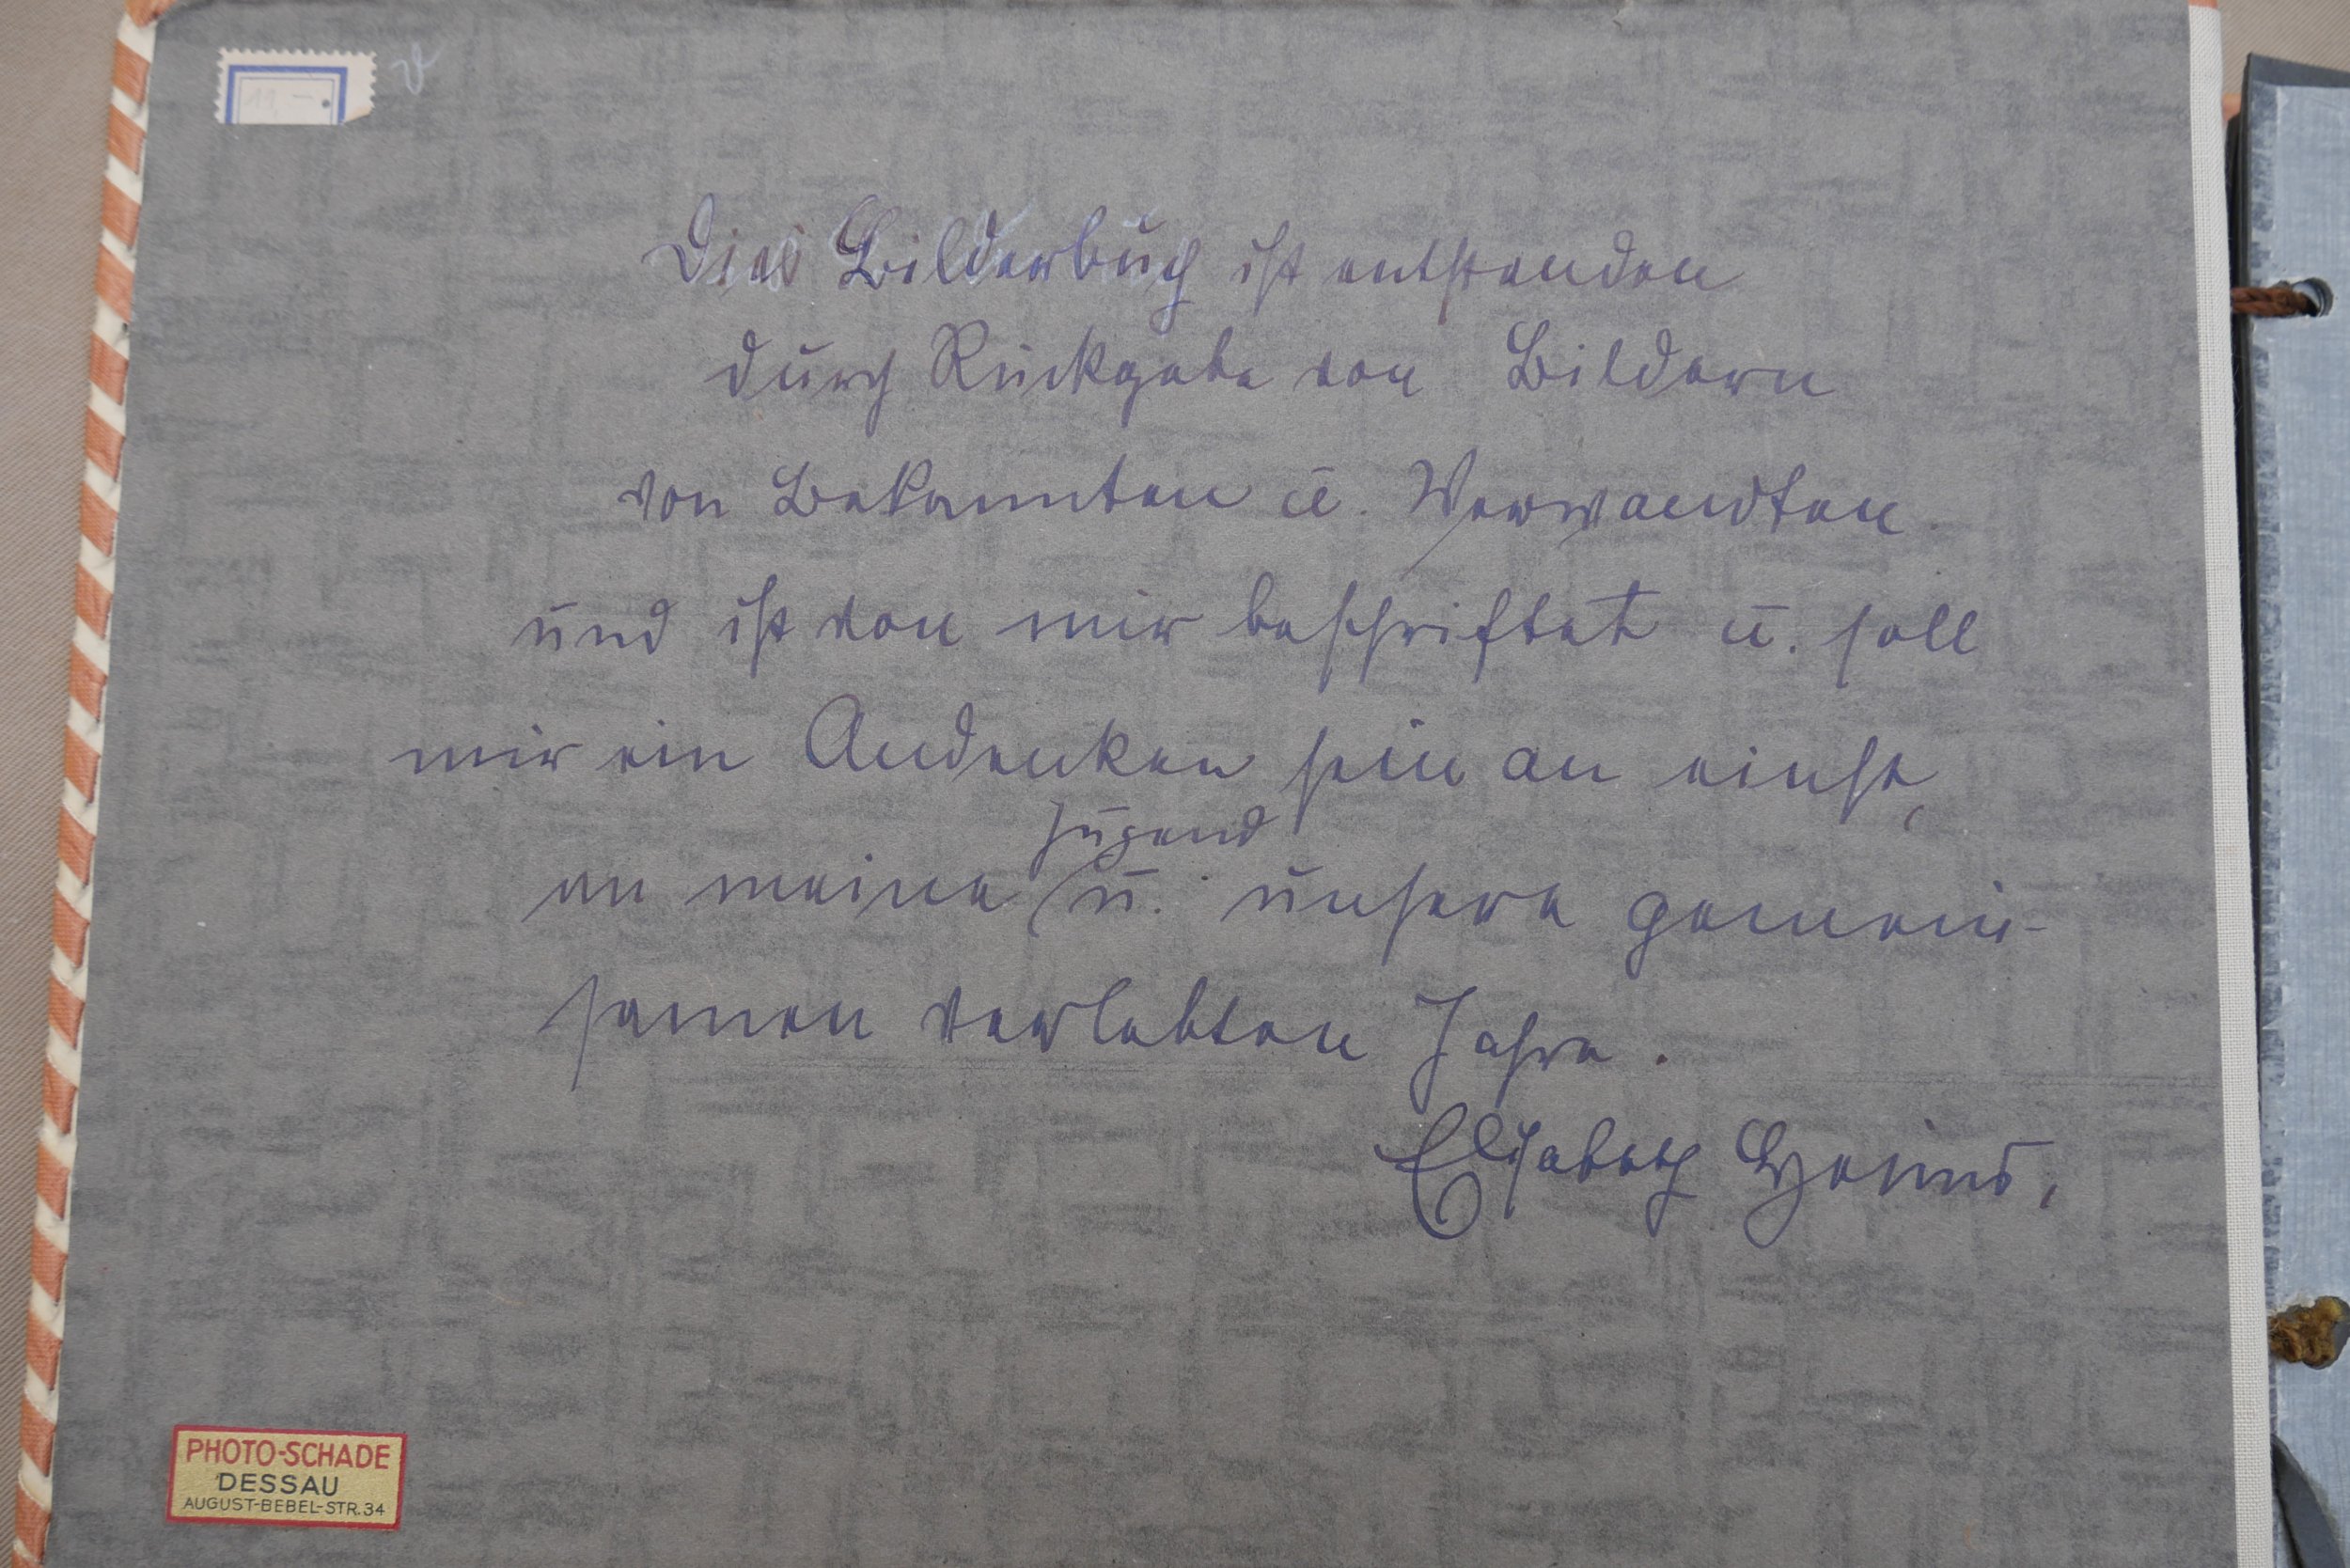 19,–
Dies Bilderbuch ist entstanden
durch Rückgabe von Bildern
von Bekannten u. Verwandten
und ist von mir beschriftet u. soll
mir ein Andenken sein an einst,
Jugend
an meine u. unsere gemein-
samen verlebten Jahre.
Elisabeth Heins.
PHOTO-SCHADE
DESSAU
AUGUST-BEBEL-STR. 34